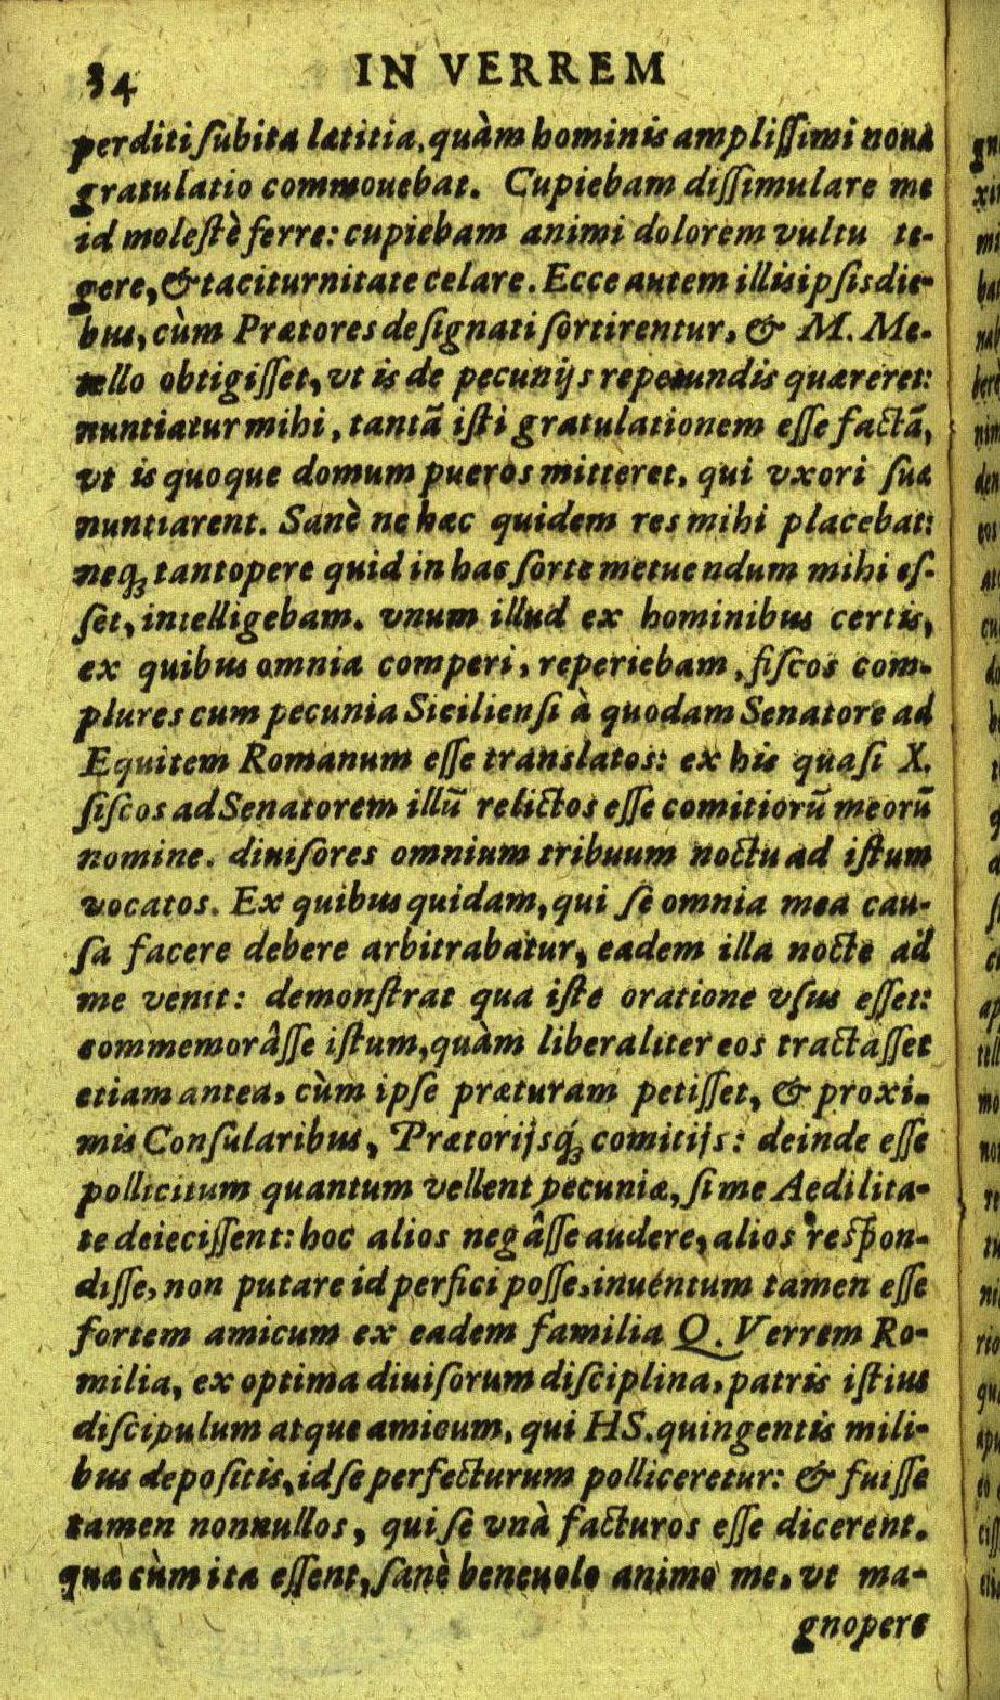 34 IN VERREM
perditi ſubita lætitia, quàm hominis ampliſſimi noua
gratulatio commouebat. Cupiebam diſſimulare me
id moleſtè ferre: cupiebam animi dolorem vultu te-
gere, & taciturnitate celare. Ecce autem illis ipſis die-
bus, cùm Prætores deſignati ſortirentur, & M. Me-
tello obtigiſſet, vt is de pecunijs repetundis quæreret:
nuntiatur mihi, tantã iſti gratulationem eſſe factã,
vt is quoque domum pueros mitteret, qui vxori ſuæ
nuntiarent. Sanè ne hæc quidem res mihi placebat:
neq; tantopere quid in hac ſorte metuendum mihi eſ-
ſet, intelligebam. vnum illud ex hominibus certis,
ex quibus omnia comperi, reperiebam, fiſcos com-
plures cum pecunia Sicilienſi à quodam Senatore ad
Equitem Romanum eſſe translatos: ex his quaſi X.
fiſcos ad Senatorem illũ relictos eſſe comitiorũ meorũ
nomine. diuiſores omnium tribuum noctu ad iſtum
vocatos. Ex quibus quidam, qui ſe omnia mea cau-
ſa facere debere arbitrabatur, eadem illa nocte ad
me venit: demonſtrat qua iſte oratione vſus eſſet:
commemorâſſe iſtum, quàm liberaliter eos tractaſſet
etiam antea, cùm ipſe præturam petiſſet, & proxi-
mis Conſularibus, Prætorijsq́; comitijs: deinde eſſe
pollicitum quantum vellent pecuniæ, ſi me Aedilita-
te deieciſſent: hoc alios negâſſe audere, alios reſpon-
diſſe, non putare id perfici poſſe, inuentum tamen eſſe
fortem amicum ex eadem familia Q. Verrem Ro-
milia, ex optima diuiſorum diſciplina, patris iſtius
diſcipulum atque amicum, qui HS. quingentis mili-
bus depoſitis, id ſe perfecturum polliceretur: & fuiſſe
tamen nonnullos, qui ſe vnà facturos eſſe dicerent.
quæ cùm ita eſſent, ſanè beneuolo animo me, vt ma-
gnopere